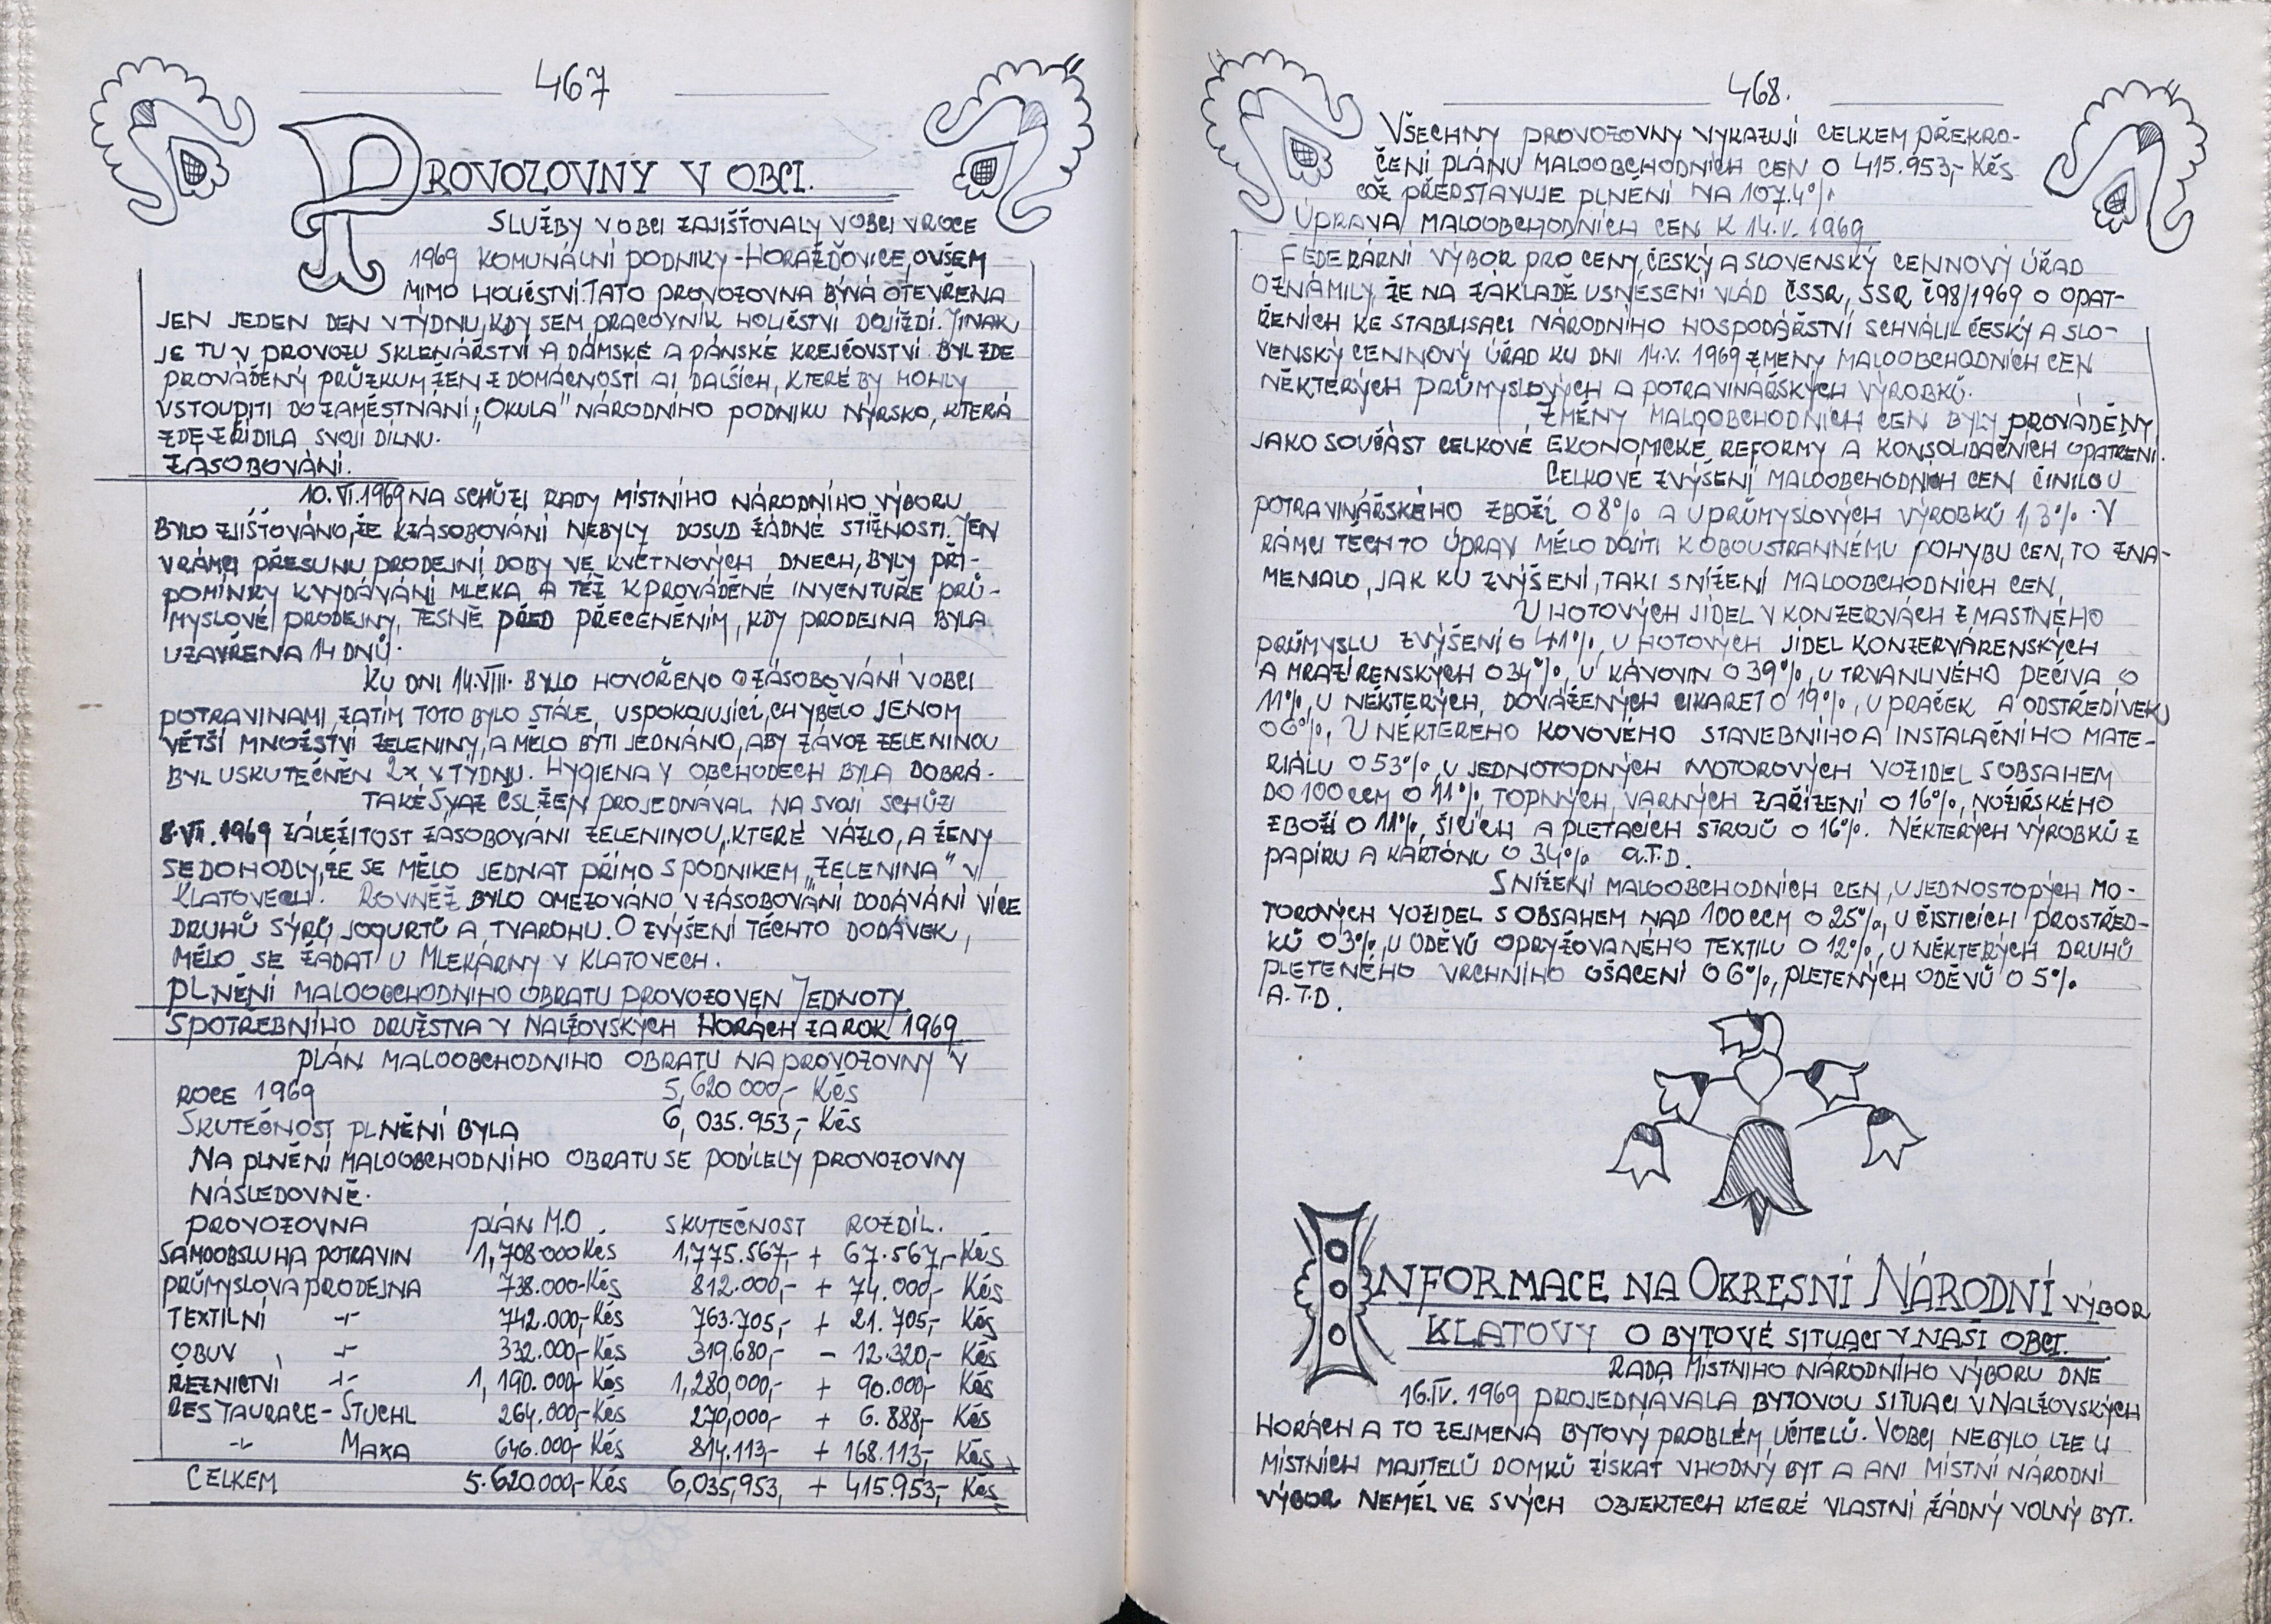 467
PROVOZOVNY V OBCI.
SLUŽBY V OBCI ZAJIŠŤOVALY V OBCI V ROCE
1969 KOMUNÁLNÍ PODNIKY-HORAŽĎOVICE, OVŠEM
MIMO HOLIČSTVÍ. TATO PROVOZOVNA BÝVÁ OTEVŘENA
JEN JEDEN DEN V TÝDNU, KDY SEM PRACOVNÍK HOLIČSTVÍ DOJÍŽDÍ. JINAK
JE TU V PROVOZU SKLENÁŘSTVÍ A DÁMSKÉ A PÁNSKÉ KREJČOVSTVÍ. BYL ZDE
PROVÁDĚNÝ PRŮZKUM ŽEN Z DOMÁCNOSTÍ A I DALŠÍCH, KTERÉ BY MOHLY
VSTOUPITI DO ZAMĚSTNÁNÍ „OKULA" NÁRODNÍHO PODNIKU NÝRSKO, KTERÁ
ZDE ZŘÍDILA SVOJÍ DÍLNU.
ZÁSOBOVÁNÍ.
10. VI. 1969 NA SCHŮZI RADY MÍSTNÍHO NÁRODNÍHO VÝBORU
BYLO ZJIŠŤOVÁNO, ŽE K ZÁSOBOVÁNÍ NEBYLY DOSUD ŽÁDNÉ STÍŽNOSTI. JEN
V RÁMCI PŘESUNU PRODEJNÍ DOBY VE KVĚTNOVÝCH DNECH, BYLY PŘI-
POMÍNKY K VYDÁVÁNÍ MLÉKA A TÉŽ K PROVÁDĚNÉ INVENTUŘE PRŮ-
MYSLOVÉ PRODEJNY, TĚSNĚ PŘED PŘECENĚNÍM, KDY PRODEJNA BYLA
UZAVŘENA 14 DNŮ.
KU DNI 14. VIII. BYLO HOVOŘENO O ZÁSOBOVÁNÍ V OBCI
POTRAVINAMI, ZATÍM TOTO BYLO STÁLE, USPOKOJUJÍCÍ, CHYBĚLO JENOM
VĚTŠÍ MNOŽSTVÍ ZELENINY, A MĚLO BÝTI JEDNÁNO, ABY ZÁVOZ ZELENINOU
BYL USKUTEČNĚN 2x V TÝDNU. HYGIENA V OBCHODECH BYLA DOBRÁ.
TAKÉ SVAZ ČSL. ŽEN PROJEDNÁVAL NA SVOJÍ SCHŮZI
8. VII. 1969 ZÁLEŽITOST ZÁSOBOVÁNÍ ZELENINOU, KTERÉ VÁZLO, A ŽENY
SE DOHODLY, ŽE SE MĚLO JEDNAT PŘÍMO S PODNIKEM „ZELENINA" V
KLATOVECH. ROVNĚŽ BYLO OMEZOVÁNO V ZÁSOBOVÁNÍ DODÁVÁNÍ VÍCE
DRUHŮ SÝRŮ, JOGURTŮ A TVAROHU. O ZVÝŠENÍ TĚCHTO DODÁVEK,
MĚLO SE ŽÁDAT U MLÉKÁRNY V KLATOVECH.
PLNĚNÍ MALOOBCHODNÍHO OBRATU PROVOZOVEN JEDNOTY
SPOTŘEBNÍHO DRUŽSTVA V NALŽOVSKÝCH HORÁCH ZA ROK 1969
PLÁN MALOOBCHODNÍHO OBRATU NA PROVOZOVNY V
ROCE 1969 5,620 000,- Kčs
SKUTEČNOST PLNĚNÍ BYLA 6,035.953,- Kčs
NA PLNĚNÍ MALOOBCHODNÍHO OBRATU SE PODÍLELY PROVOZOVNY
NÁSLEDOVNĚ.
PROVOZOVNA PLÁN M.O. SKUTEČNOST ROZDÍL.
SAMOOBSLUHA POTRAVIN 1,708 000 Kčs 1,775.567,- + 67.567,- Kčs
PRŮMYSLOVÁ PRODEJNA 738.000-Kčs 812.000,- + 74.000,- Kčs
TEXTILNÍ -"- 742.000,-Kčs 763.705,- + 21.705,- Kčs
OBUV -"- 332.000,-Kčs 319.680,- - 12.320,- Kčs
ŘEZNICTVÍ -"- 1,190.000,- Kčs 1,280,000,- + 90.000,- Kčs
RESTAURACE - STUCHL 264.000,-Kčs 270,000,- + 6.888,- Kčs
-"- MAXA 646.000,- Kčs 814.113,- + 168.113,- Kčs
CELKEM 5.620.000,- Kčs 6,035,953, + 415.953,- Kčs
468.
VŠECHNY PROVOZOVNY VYKAZUJÍ CELKEM PŘEKRO-
ČENÍ PLÁNU MALOOBCHODNÍCH CEN O 415.953,- Kčs
COŽ PŘEDSTAVUJE PLNĚNÍ NA 107.4%
ÚPRAVA MALOOBCHODNÍCH CEN K 14. V. 1969
FEDERÁRNÍ VÝBOR PRO CENY, ČESKÝ A SLOVENSKÝ CENNOVÝ ÚŘAD
OZNÁMILY, ŽE NA ZÁKLADĚ USNESENÍ VLÁD ČSSR, SSR Č98/1969 O OPAT-
ŘENÍCH KE STABILISACI NÁRODNÍHO HOSPODÁŘSTVÍ SCHVÁLIL ČESKÝ A SLO-
VENSKÝ CENNOVÝ ÚŘAD KU DNI 14. V. 1969 ZMĚNY MALOOBCHODNÍCH CEN
NĚKTERÝCH PRŮMYSLOVÝCH A POTRAVINÁŘSKÝCH VÝROBKŮ.
ZMĚNY MALOOBCHODNÍCH CEN BYLY PROVÁDĚNY
JAKO SOUČÁST CELKOVÉ EKONOMICKÉ REFORMY A KONSOLIDAČNÍCH OPATŘENÍ.
CELKOVÉ ZVÝŠENÍ MALOOBCHODNÍCH CEN ČINILO U
POTRAVINÁŘSKÉHO ZBOŽÍ O 8% A U PRŮMYSLOVÝCH VÝROBKŮ 1,3%. V
RÁMCI TĚCHTO ÚPRAV MĚLO DOJÍTI K OBOUSTRANNÉMU POHYBU CEN, TO ZNA-
MENALO, JAK KU ZVÝŠENÍ, TAK I SNÍŽENÍ MALOOBCHODNÍCH CEN.
U HOTOVÝCH JÍDEL V KONZERVÁCH Z MASTNÉHO
PRŮMYSLU ZVÝŠENÍ O 41%, U HOTOVÝCH JÍDEL KONZERVÁRENSKÝCH
A MRAZÍRENSKÝCH O 34%, U KÁVOVIN O 39%, U TRVANLIVÉHO PEČIVA O
11%, U NĚKTERÝCH, DOVÁŽENÝCH CIKARET O 19%, U PRAČEK A ODSTŘEDIVEK
O 6%, U NĚKTERÉHO KOVOVÉHO STAVEBNÍHO A INSTALAČNÍHO MATE-
RIÁLU O 53%, U JEDNOTOPNÝCH MOTOROVÝCH VOZIDEL S OBSAHEM
DO 100 CCM O 11%, TOPNÝCH, VARNÝCH ZAŘÍZENÍ O 16%, NOŽÍŘSKÉHO
ZBOŽÍ O 11%, ŠICÍCH A PLETACÍCH STROJŮ O 16%. NĚKTERÝCH VÝROBKŮ Z
PAPÍRU A KARTÓNU O 34% A.T.D.
SNÍŽENÍ MALOOBCHODNÍCH CEN, U JEDNOSTOPÝCH MO-
TOROVÝCH VOZIDEL S OBSAHEM NAD 100 CCM O 25%, U ČISTICÍCH PROSTŘED-
KŮ O 3%, U ODĚVŮ O PRYŽOVANÉHO TEXTILU O 12%, U NĚKTERÝCH DRUHŮ
PLETENÉHO VRCHNÍHO OŠACENÍ O 6%, PLETENÝCH ODĚVŮ O 5%
A.T.D.
INFORMACE NA OKRESNÍ NÁRODNÍ VÝBOR
KLATOVY O BYTOVÉ SITUACI V NAŠÍ OBCI.
RADA MÍSTNÍHO NÁRODNÍHO VÝBORU DNE
16. IV. 1969 PROJEDNÁVALA BYTOVOU SITUACI V NALŽOVSKÝCH
HORÁCH A TO ZEJMÉNA BYTOVÝ PROBLÉM UČITELŮ. V OBCI NEBYLO LZE U
MÍSTNÍCH MAJITELŮ DOMKŮ ZÍSKAT VHODNÝ BYT A ANI MÍSTNÍ NÁRODNÍ
VÝBOR NEMĚL VE SVÝCH OBJEKTECH KTERÉ VLASTNÍ ŽÁDNÝ VOLNÝ BYT.